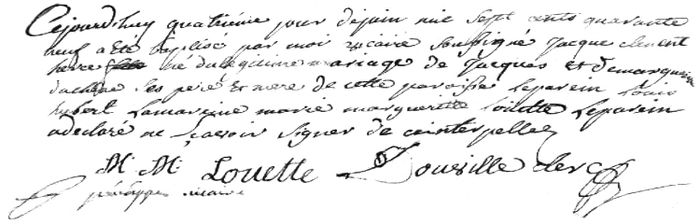 Cejourdhuy quatriéme jour dejuin mie Sept cents quarante
neuf a été baptisé par moi vicaire Soussigné Jacque clement
né du legitime mariage de Jacques Et de marguerite
Ses peré Et mere de cette paroisse Leparein Louis
hubert Lamareine marie marguerite Louette Leparein
adeclaré ne scavoir Signer de ceinterpellez
M. M. Louette Dourville clerc
vicaire